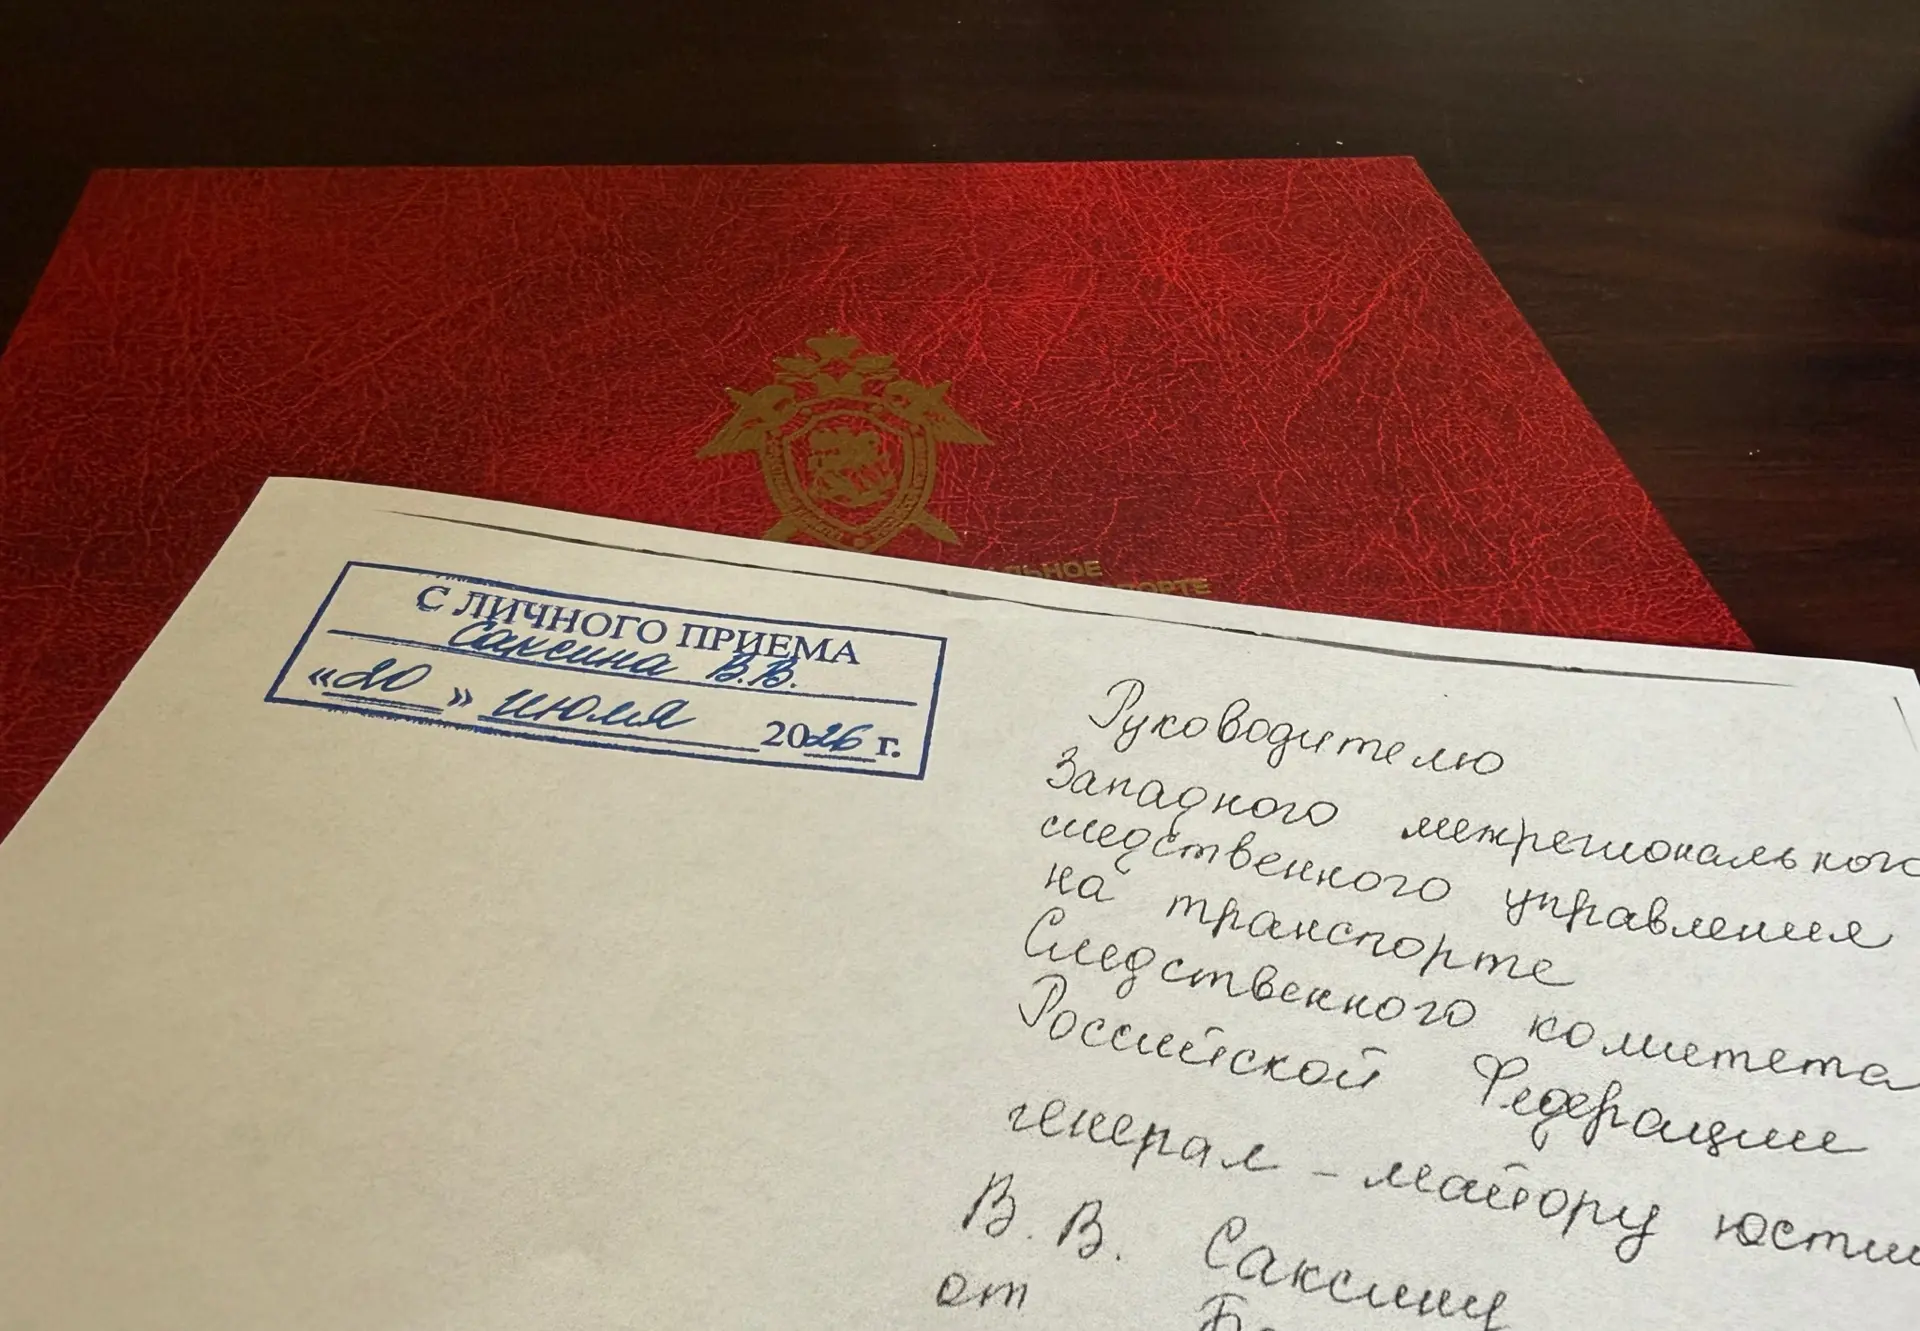 ЛЬНОЕ
ПОРТЕ
С ЛИЧНОГО ПРИЕМА
Саксина В.В.
«20» июля 2026 г.
Руководителю
Западного межрегионального
следственного управления
на транспорте
Следственного комитета
Российской Федерации
генерал-майору юсти
В. В. Саксину
от